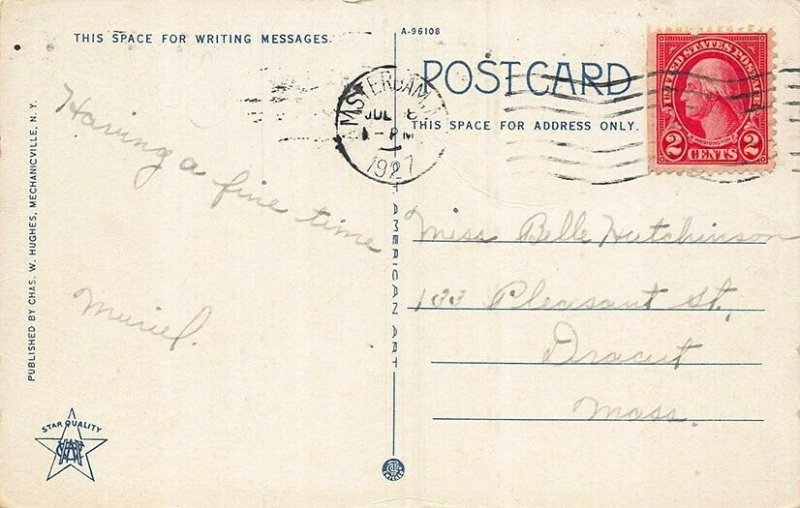 THIS SPACE FOR WRITING MESSAGES.
A-96108
POST CARD
THIS SPACE FOR ADDRESS ONLY.
AMSTERDAM
JUL 8
PM
1927
UNITED STATES POSTAGE
WASHINGTON
2 CENTS 2
Having a
fine time
Muriel.
Miss Belle Hutchinson
133 Pleasant St.
Dracut
Mass.
PUBLISHED BY CHAS. W. HUGHES, MECHANICVILLE, N.Y.
AMERICAN ART
STAR QUALITY